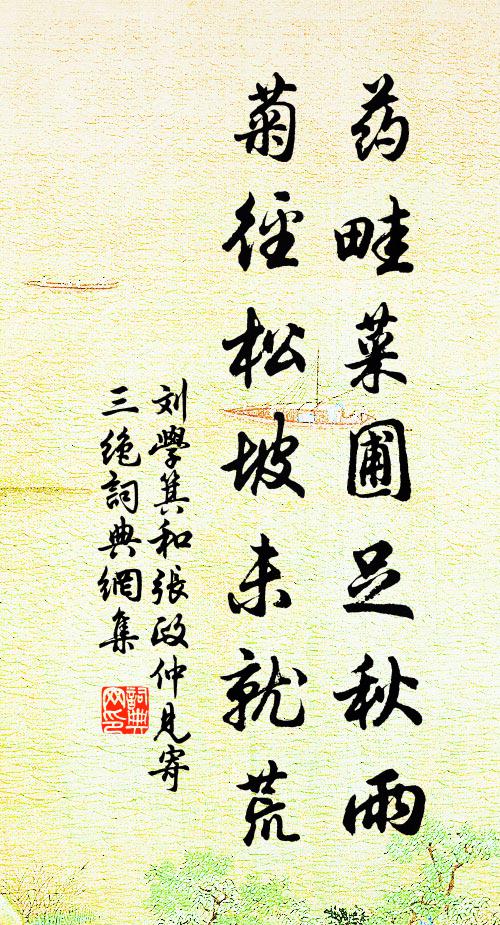 药畦菜圃足秋雨
菊徑松坡未就荒
刘學箕和張政仲見寄
三絶詞典網集
詞典
网